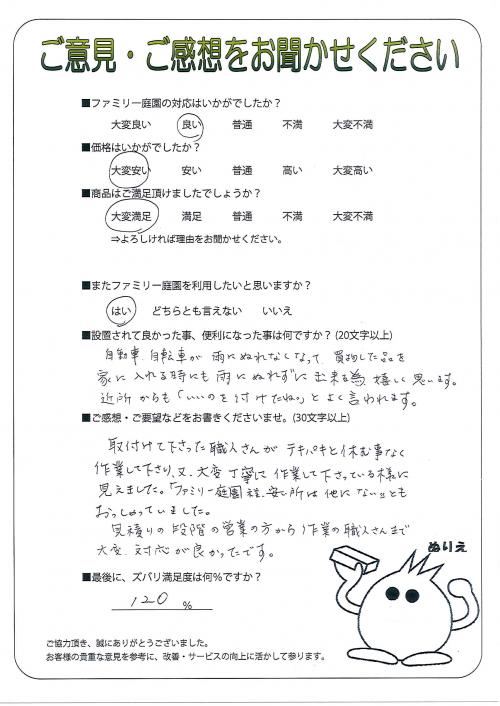 ご意見・ご感想をお聞かせください
■ファミリー庭園の対応はいかがでしたか？
大変良い 良い 普通 不満 大変不満
■価格はいかがでしたか？
大変安い 安い 普通 高い 大変高い
■商品はご満足頂けましたでしょうか？
大変満足 満足 普通 不満 大変不満
⇒よろしければ理由をお聞かせください。
■またファミリー庭園を利用したいと思いますか？
はい どちらとも言えない いいえ
■設置されて良かった事、便利になった事は何ですか？(20文字以上)
自動車、自転車が雨にぬれなくなって、買物した品を
家に入れる時にも雨にぬれずに出来る為嬉しく思います。
近所からも「いいのを付けたね。」とよく言われます。
■ご感想・ご要望などをお書きくださいませ。(30文字以上)
取付けて下さった職人さんがテキパキと休む事なく
作業して下さり、又、大変丁寧に作業して下さっている様に
見えました。「ファミリー庭園程、安い所は他にない」とも
おっしゃっていました。
見積りの段階の営業の方から作業の職人さんまで
大変対応が良かったです。
ぬりえ
■最後に、ズバリ満足度は何％ですか？
120 %
ご協力頂き、誠にありがとうございました。
お客様の貴重な意見を参考に、改善・サービスの向上に活かして参ります。